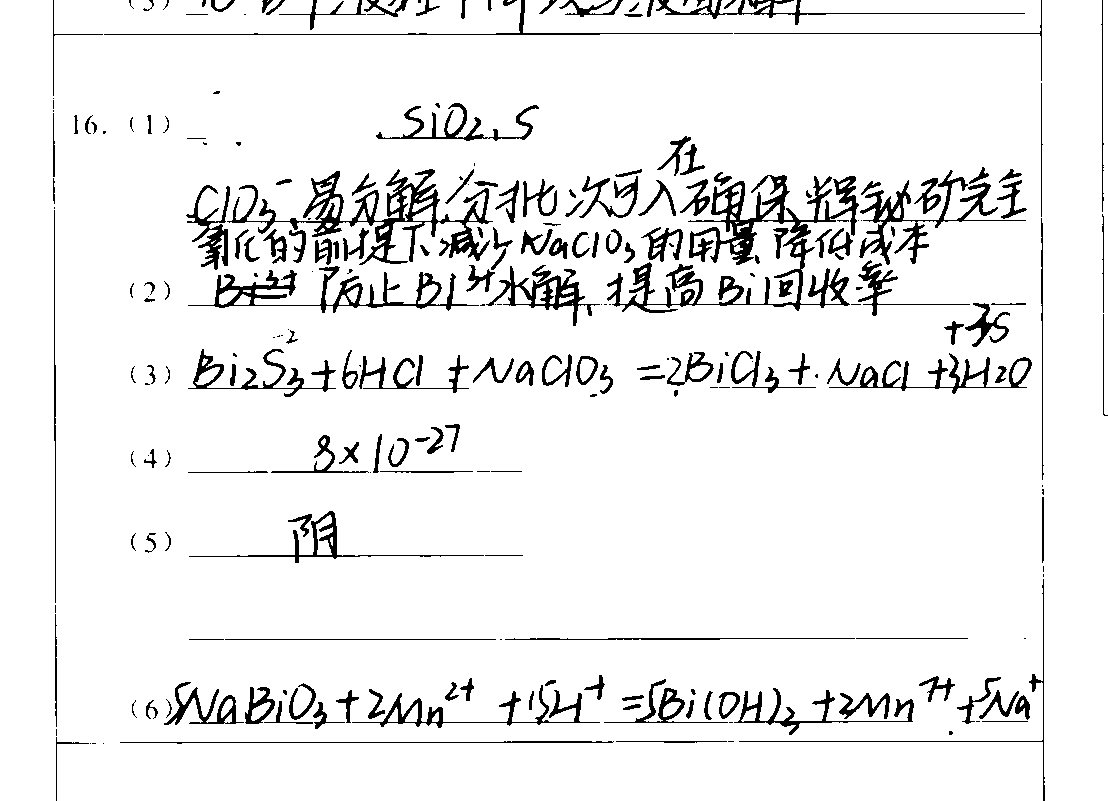 16.（1） SiO₂、S
在
ClO₃⁻易分解，分批次可入确保辉铋矿完全
氧化的前提下减少NaClO₃的用量,降低成本
（2） 防止Bi³⁺水解，提高Bi回收率
+3S
（3） Bi₂S₃+6HCl+NaClO₃=2BiCl₃+NaCl+3H₂O
（4） 8×10⁻²⁷
（5） 阴
（6） 5NaBiO₃+2Mn²⁺+15H⁺=5Bi(OH)₃+2Mn⁷⁺+5Na⁺